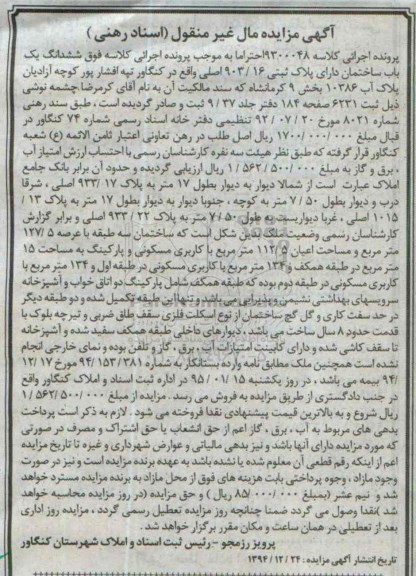 آگهی مزایده مال غیر منقول (اسناد رهنی)
پرونده اجرائی کلاسه ۹۳۰۰۰۴۸ احتراما به موجب پرونده اجرائی کلاسه فوق ششدانگ یک
باب ساختمان دارای پلاک ثبتی ۱۶ / ۹۰۳ اصلی واقع در کنگاور تپه افشار پور کوچه آزادیان
پلاک آب ۱۰۳۸۶ بخش ۹ کرمانشاه که سند مالکیت آن به نام آقای کرمرضا چشمه نوشی
ذیل ثبت ۶۲۲۱ صفحه ۱۸۴ دفتر جلد ۳۷ / ۹ ثبت و صادر گردیده است ، طبق سند رهنی
شماره ۸۰۲۱ مورخ ۲۰ / ۰۷ / ۹۲ تنظیمی دفتر خانه اسناد رسمی شماره ۷۴ کنگاور در
قبال مبلغ ۱۷۰۰/۰۰۰/۰۰۰ ریال اصل طلب در رهن تعاونی اعتبار ثامن الائمه (ع) شعبه
کنگاور قرار گرفته که طبق نظر هیئت سه نفره کارشناسان رسمی با احتساب ارزش امتیاز آب
، برق و گاز به مبلغ ۵۰۰/۰۰۰ / ۵۶۲ / ۱ ریال ارزیابی گردیده و حدود آن برابر بانک جامع
املاک عبارت است از شمالا دیوار به دیوار بطول ۱۷ متر به پلاک ۱۷ / ۹۳۳ اصلی ، شرقا
درب و دیوار بطول ۵۰ / ۷ متر به کوچه ، جنوبا دیوار به دیوار بطول ۱۷ متر به پلاک ۱۳ /
۱۰۱۵ اصلی ، غربا دیواریست به طول ۵۰ / ۷ متر به پلاک ۲۲ / ۹۳۳ اصلی و برابر گزارش
کارشناسان رسمی وضعیت ملک بدین شکل است که ساختمان سه طبقه با عرصه ۵ / ۱۲۷
متر مربع و مساحت اعیان ۵ / ۱۱۲ متر مربع با کاربری مسکونی و پارکینگ به مساحت ۱۵
متر مربع در طبقه همکف و ۱۳۴ متر مربع با کاربری مسکونی در طبقه اول و ۱۳۴ متر مربع با
کاربری مسکونی در طبقه دوم بوده که طبقه همکف شامل پارکینگ دو اتاق خواب و آشپزخانه
سرویسهای بهداشتی نشیمن و پذیرایی می باشد و تنها این طبقه تکمیل شده و دو طبقه دیگر
در حد سفت کاری و گل گچ ساختمان از نوع اسکلت فلزی سقف طاق ضربی و تیرچه بلوک با
قدمت حدود ۸ سال ساخت می باشد ، دیوارهای داخلی طبقه همکف سفید شده و آشپزخانه
تا سقف کاشی شده و دارای کابینت امتیازات آب ، برق ، گاز و تلفن بوده و نمای خارجی انجام
نشده است همچنین ملک مطابق نامه وارده بستانکار به شماره ۳۸۱ / ۹۴/۱۵۳ مورخ ۱۷ / ۱۲
/ ۹۴ بیمه می باشد ، در روز یکشنبه ۱۵ / ۰۱ / ۹۵ در اداره ثبت اسناد و املاک کنگاور واقع
در جنب دادگستری از طریق مزایده به فروش می رسد . مزایده از مبلغ ۵۰۰/۰۰۰ / ۵۶۲ / ۱
ریال شروع و به بالاترین قیمت پیشنهادی نقدا فروخته می شود . لازم به ذکر است پرداخت
بدهی های مربوط به آب ، برق ، گاز اعم از حق انشعاب یا حق اشتراک و مصرف در صورتی
که مورد مزایده دارای آنها باشد و نیز بدهی مالیاتی و عوارض شهرداری و غیره تا تاریخ مزایده
اعم از اینکه رقم قطعی آن معلوم شده یا نشده باشد به عهده برنده مزایده است و نیز در صورت
وجود مازاد ، وجوه پرداختی بابت هزینه های فوق از محل مازاد به برنده مزایده مسترد خواهد
شد و نیم عشر (بمبلغ ۸۵/۰۰۰/۰۰۰ ریال ) و حق مزایده (در روز مزایده محاسبه خواهد
شد )نقدا وصول می گردد ضمنا چنانچه روز مزایده تعطیل رسمی گردد ، مزایده روز اداری
بعد از تعطیلی در همان ساعت و مکان مقرر برگزار خواهد شد .
پرویز رزمجو - رئیس ثبت اسناد و املاک شهرستان کنگاور
تاریخ انتشار آگهی مزایده : ۲۴ / ۱۲ / ۱۳۹۴